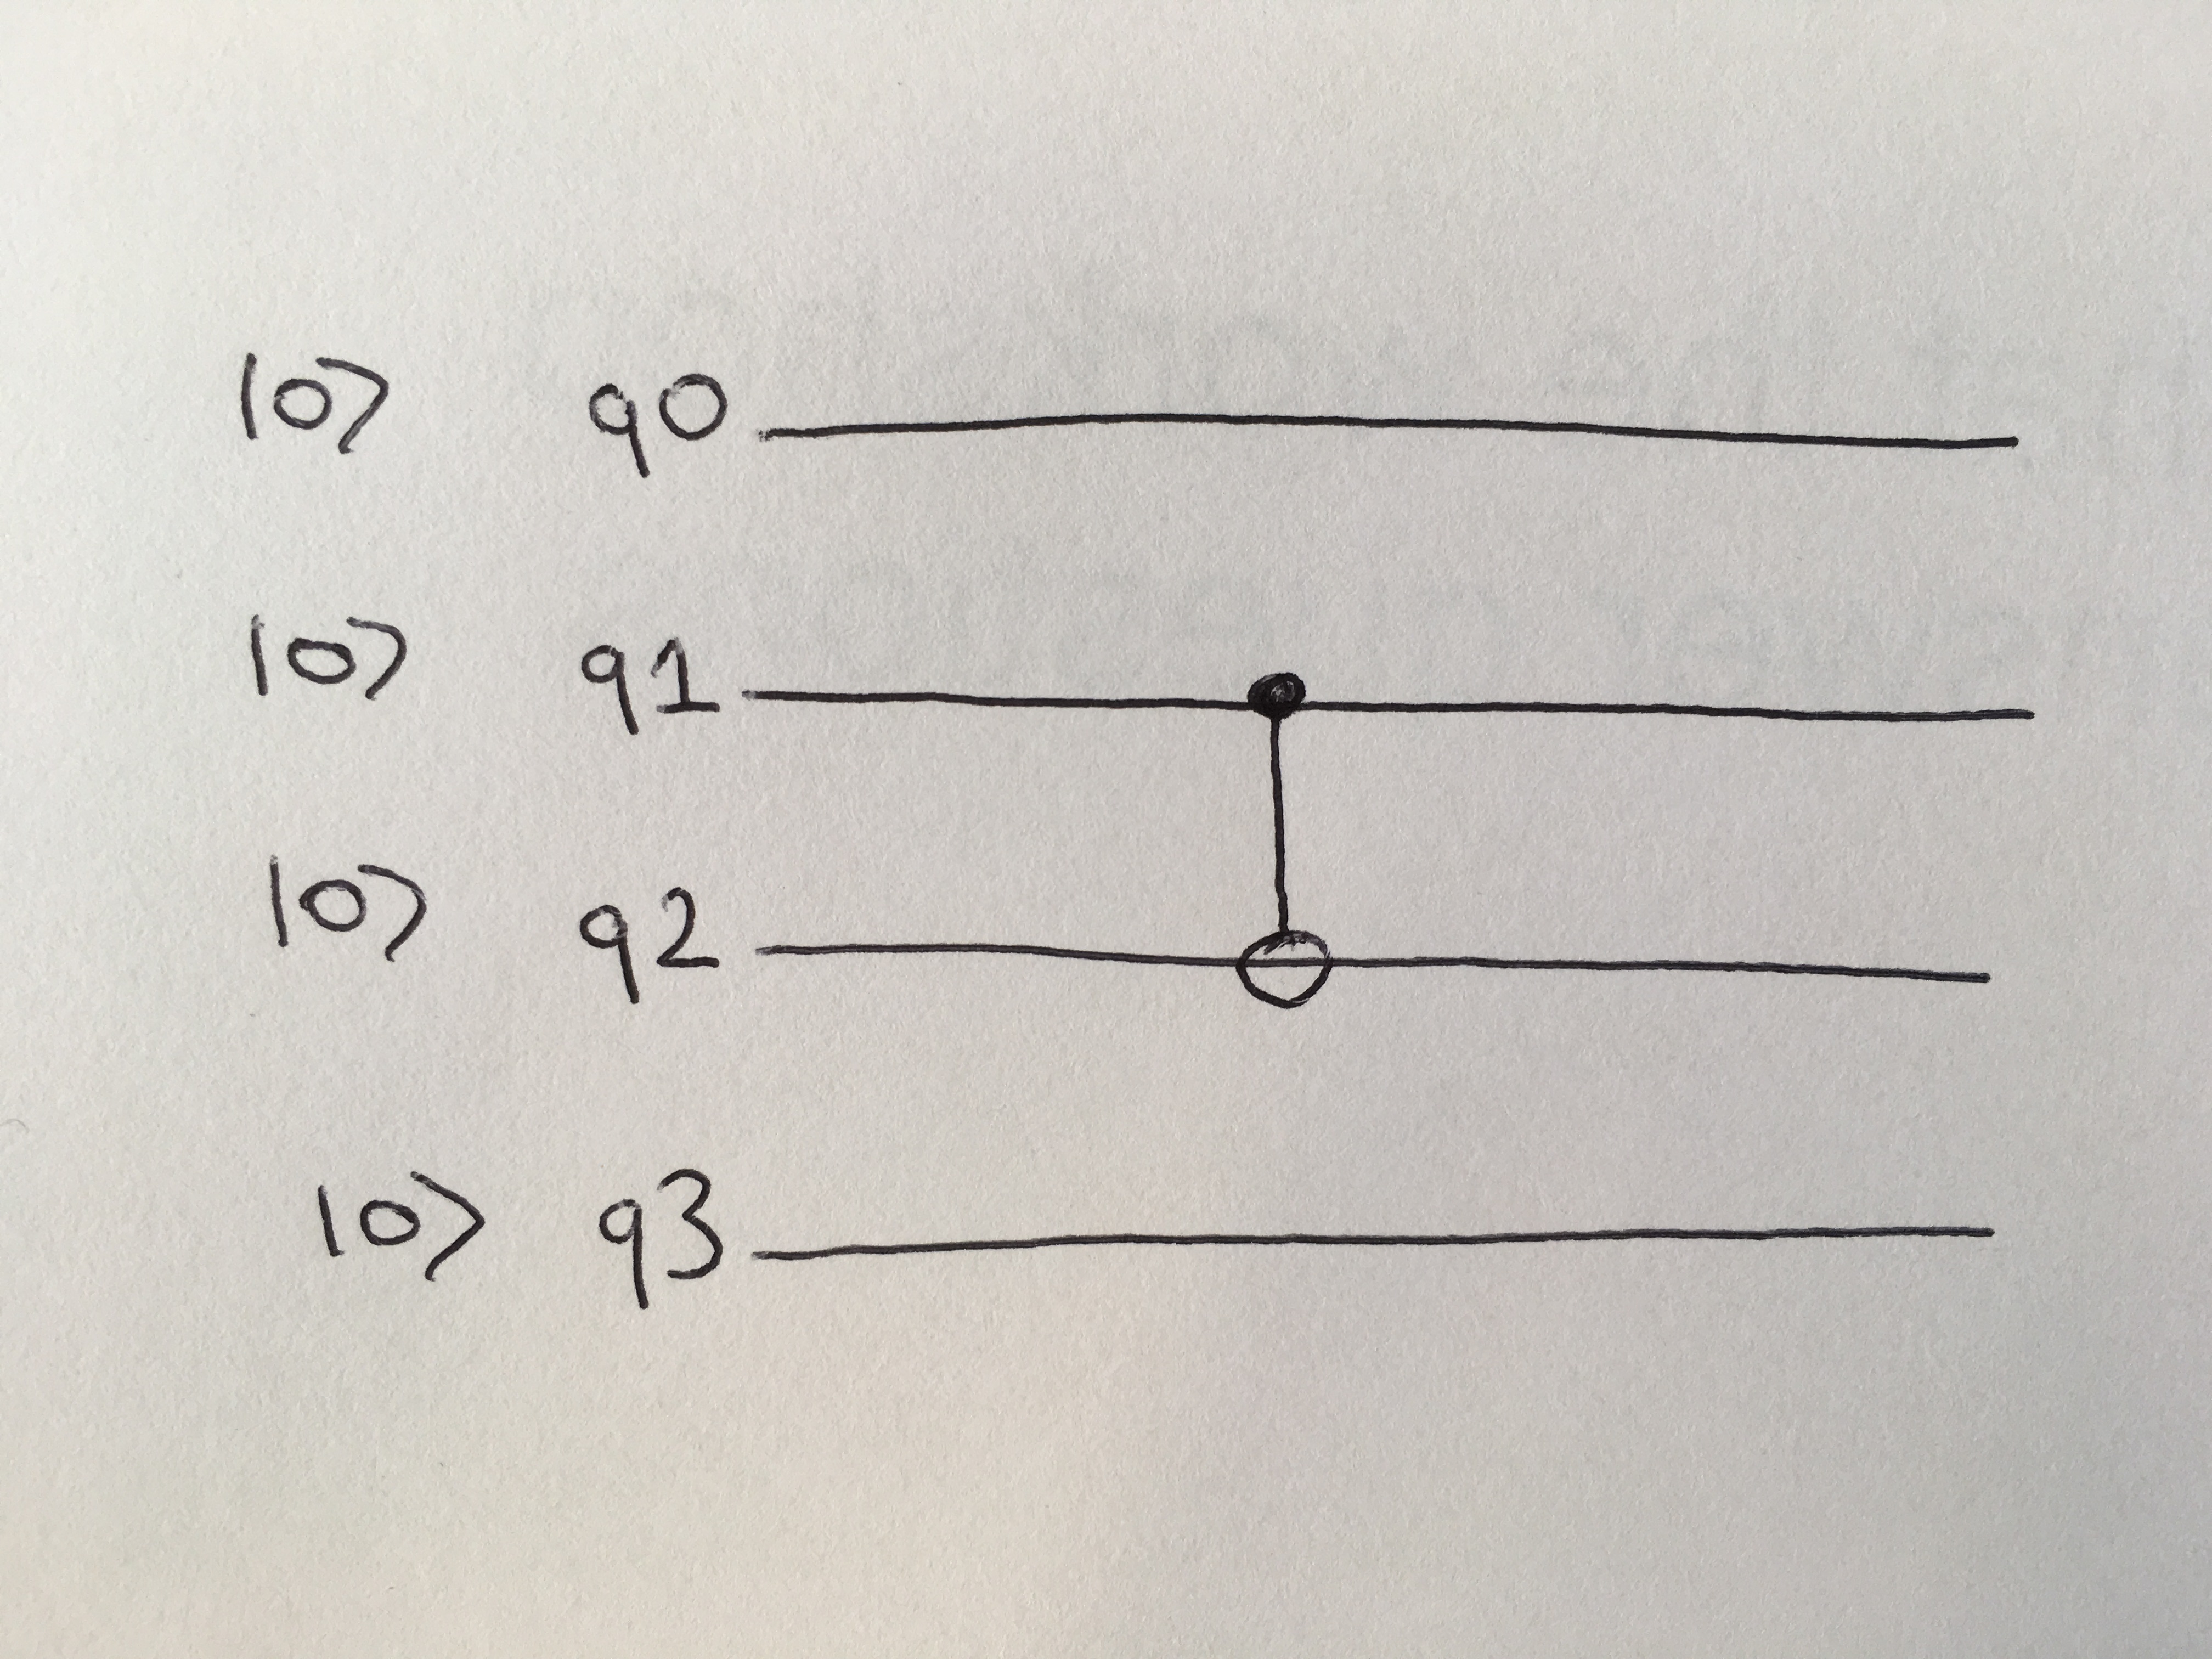 |0> q0
|0> q1
|0> q2
|0> q3